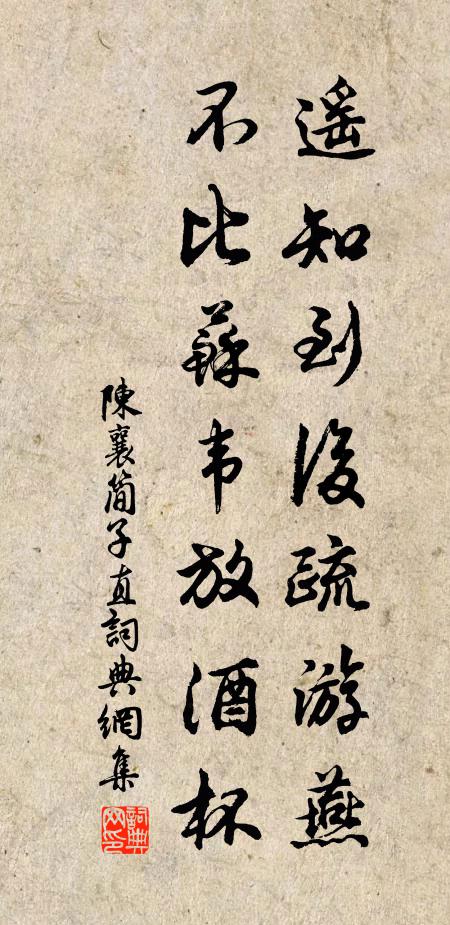 遥知到後疏游燕
不比蘇韦放酒杯
陳襄簡子直詞典網集
詞典網印